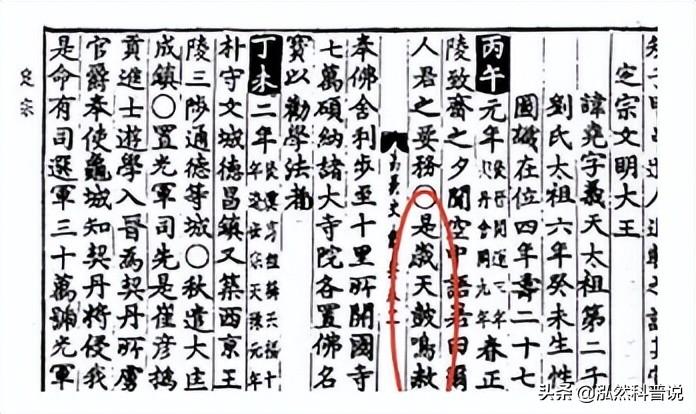 定宗文明大王
諱堯字義天太祖第二子
劉氏太祖六年癸未生性
圖讖在位四年壽二十七
丙午元年春正
陵致齋之夕聞空中語若曰爾
人君之要務○是歲天鼓鳴赦
奉佛舍利步至十里所開國寺
七萬碩納諸大寺院各置佛名
寶以勸學法者
丁未二年
朴守文城德昌鎮又築西京王
陵三陟通德等城○秋遣大匡
成鎮○置光軍司先是崔彦撝
貢進士遊學入晉為契丹所虜
官爵奉使龜城知契丹將侵我
是命有司選軍三十萬號光軍
定宗
头条 @泓然科普说